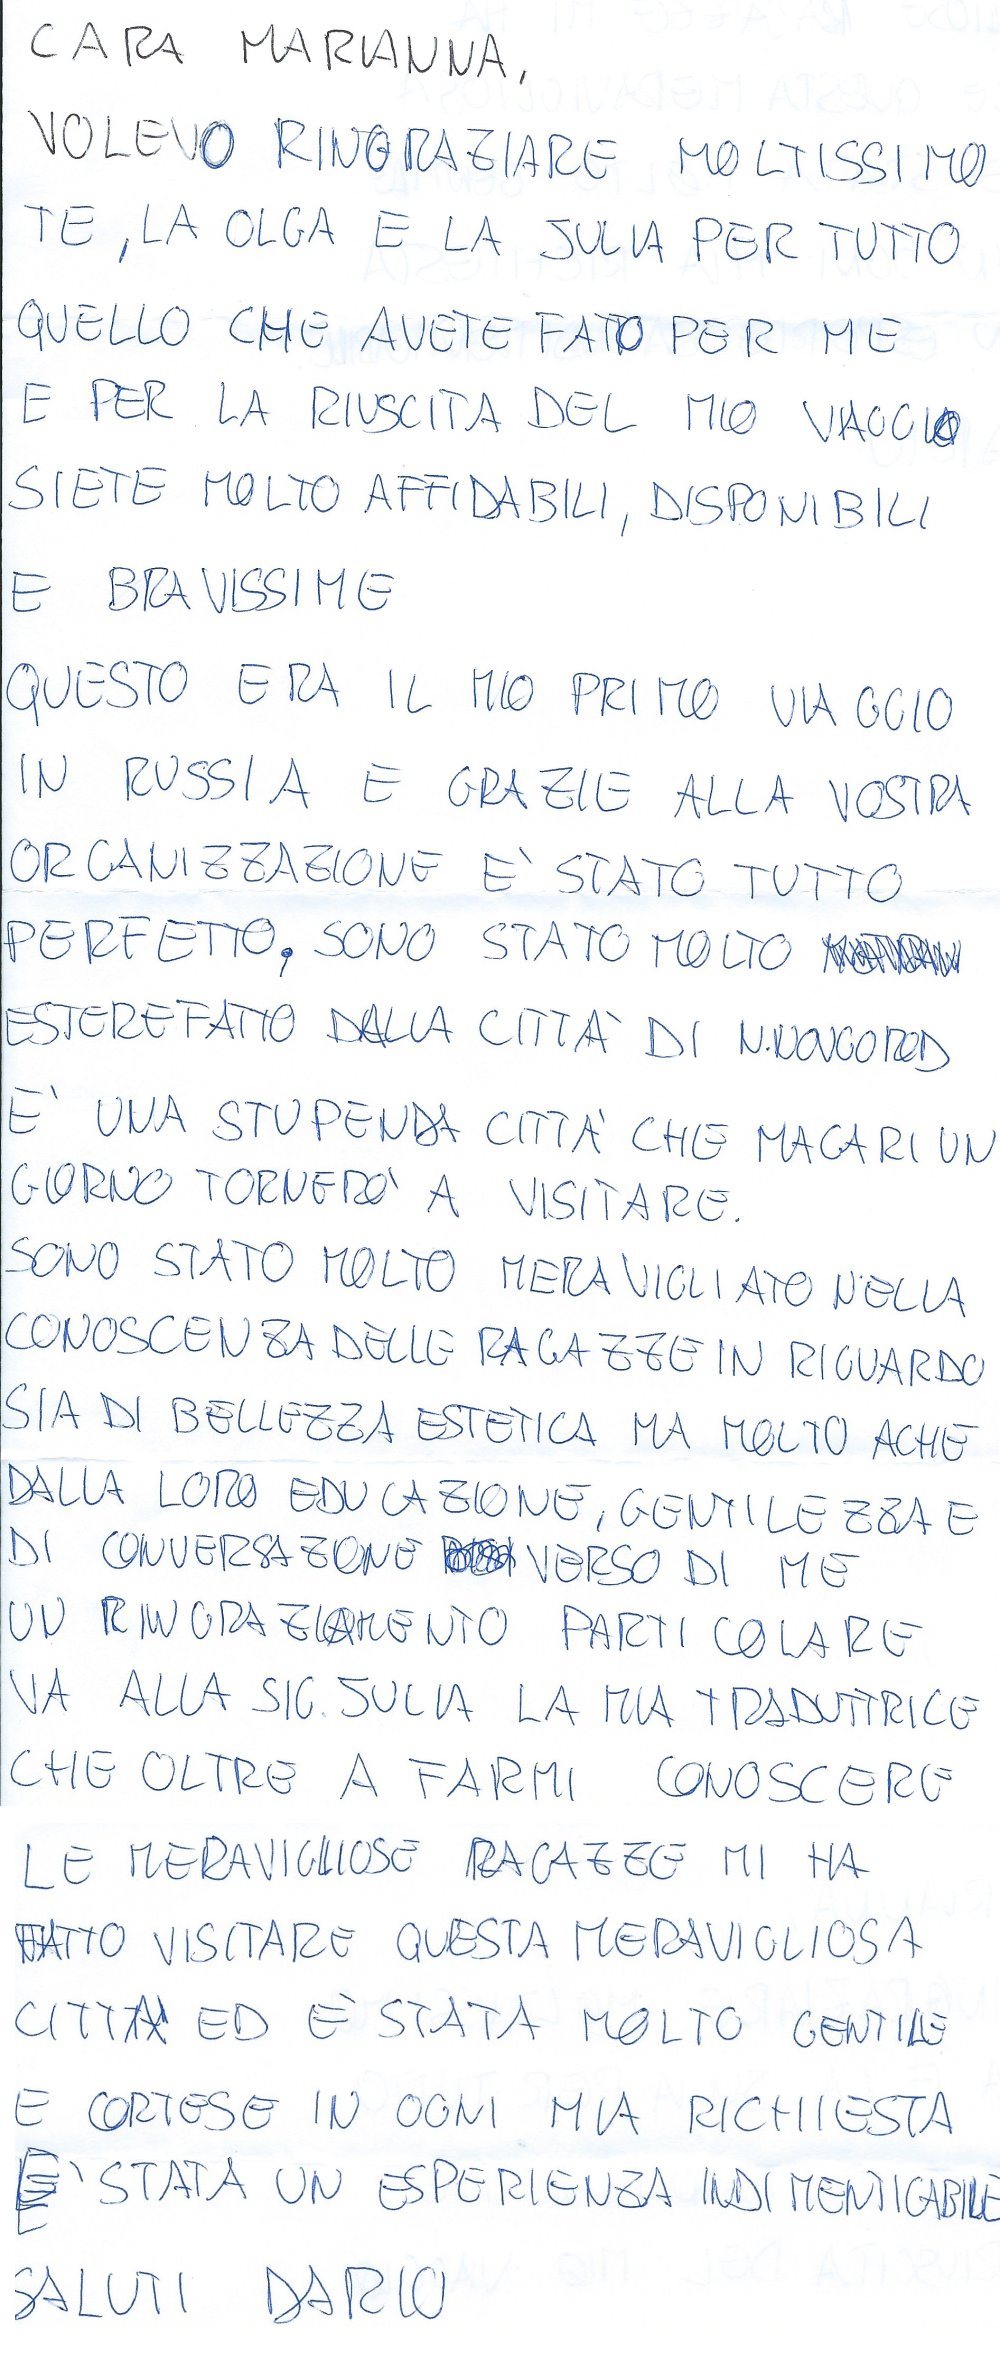 CARA MARIANNA,
VOLEVO RINGRAZIARE MOLTISSIMO
TE, LA OLGA E LA JULIA PER TUTTO
QUELLO CHE AVETE FATTO PER ME
E PER LA RIUSCITA DEL MIO VIAGGIO
SIETE MOLTO AFFIDABILI, DISPONIBILI
E BRAVISSIME
QUESTO ERA IL MIO PRIMO VIAGGIO
IN RUSSIA E GRAZIE ALLA VOSTRA
ORGANIZZAZIONE E' STATO TUTTO
PERFETTO, SONO STATO MOLTO
ESTEREFATTO DALLA CITTA' DI
E' UNA STUPENDA CITTA' CHE MAGARI UN
GIORNO TORNERO' A VISITARE.
SONO STATO MOLTO MERAVIGLIATO NELLA
CONOSCENZA DELLE RAGAZZE IN RIGUARDO
SIA DI BELLEZZA ESTETICA MA MOLTO ACHE
DALLA LORO EDUCAZIONE, GENTILEZZA E
DI CONVERSAZIONE VERSO DI ME
UN RINGRAZIAMENTO PARTICOLARE
VA ALLA SIG. JULIA LA MIA TRADUTTRICE
CHE OLTRE A FARMI CONOSCERE
LE MERAVIGLIOSE RAGAZZE MI HA
FATTO VISITARE QUESTA MERAVIGLIOSA
CITTA' ED E' STATA MOLTO GENTILE
E CORTESE IN OGNI MIA RICHIESTA
E' STATA UN ESPERIENZA INDIMENTICABILE
SALUTI DARIO